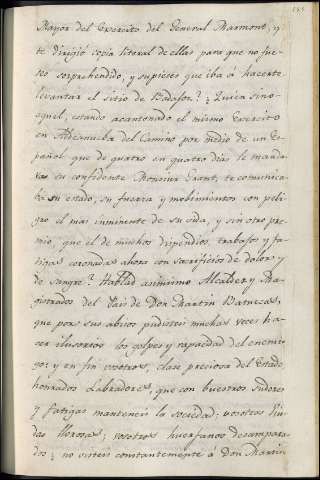 Mayor del Exercito del General Marmont, y
te dirigió copia literal de ellas para que no fue-
ses sorprehendido, y supieses que iba á hacerte
levantar el sitio de Badajoz? ¿Quien sino
aquel, estando acantonado el mismo Exercito
en Aldeanueba del Camino por medio de un Es-
pañol que de quatro en quatro dias le manda-
ras su confidente Monsiur Grant, te comunica-
ba su estado, su fuerza y mobimientos con peli-
gro el mas inminente de su vida, y sin otro pre-
mio, que el de muchos dispendios, trabajos y fa-
tigas coronadas ahora con sacrificios de dolor y
de sangre? Hablad asimismo Alcaldes y Ma-
gistrados del Pais de Don Martin Batuecas,
que por sus abisos pudisteis muchas veces ha-
cer ilusorios los golpes y rapacidad del enemi-
go: y en fin vosotros, clase preciosa del Estado
honrados Labradores, que con buestros sudores
y fatigas manteneis la sociedad: vosotras Viu-
das llorosas; vosotros huerfanos desampara-
dos; no visteis constantemente á Don Martin